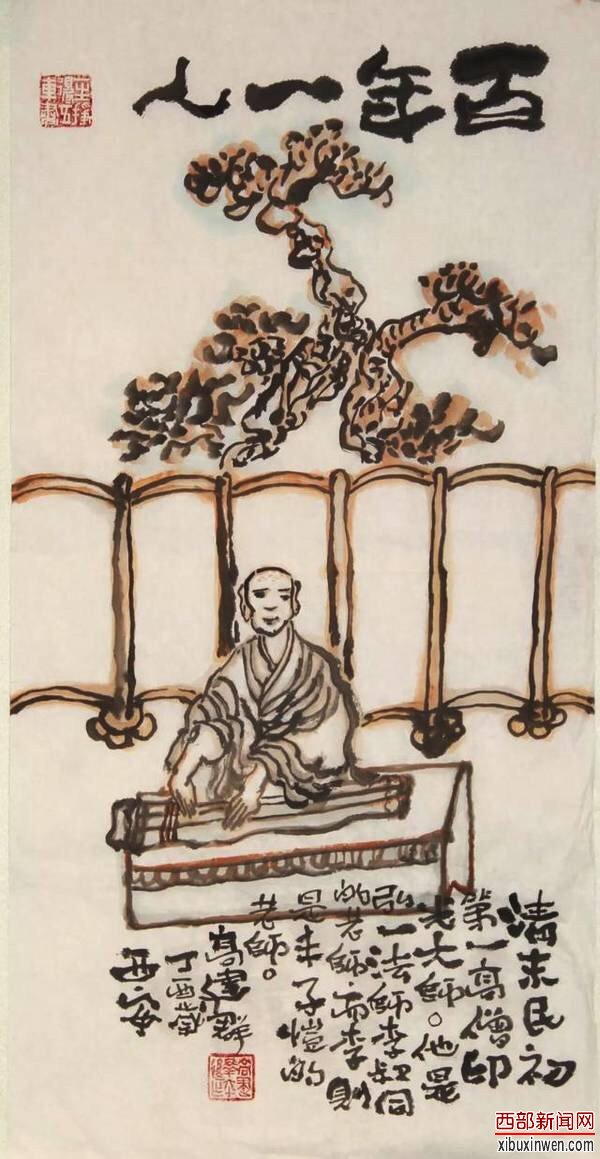 百年一人
清末民初
第一高僧印
光大師。他是
弘一法師李叔同
的老師,而李則
是丰子愷的
老師。
高建群
丁酉
西安
西部新闻网
xibuxinwen.com